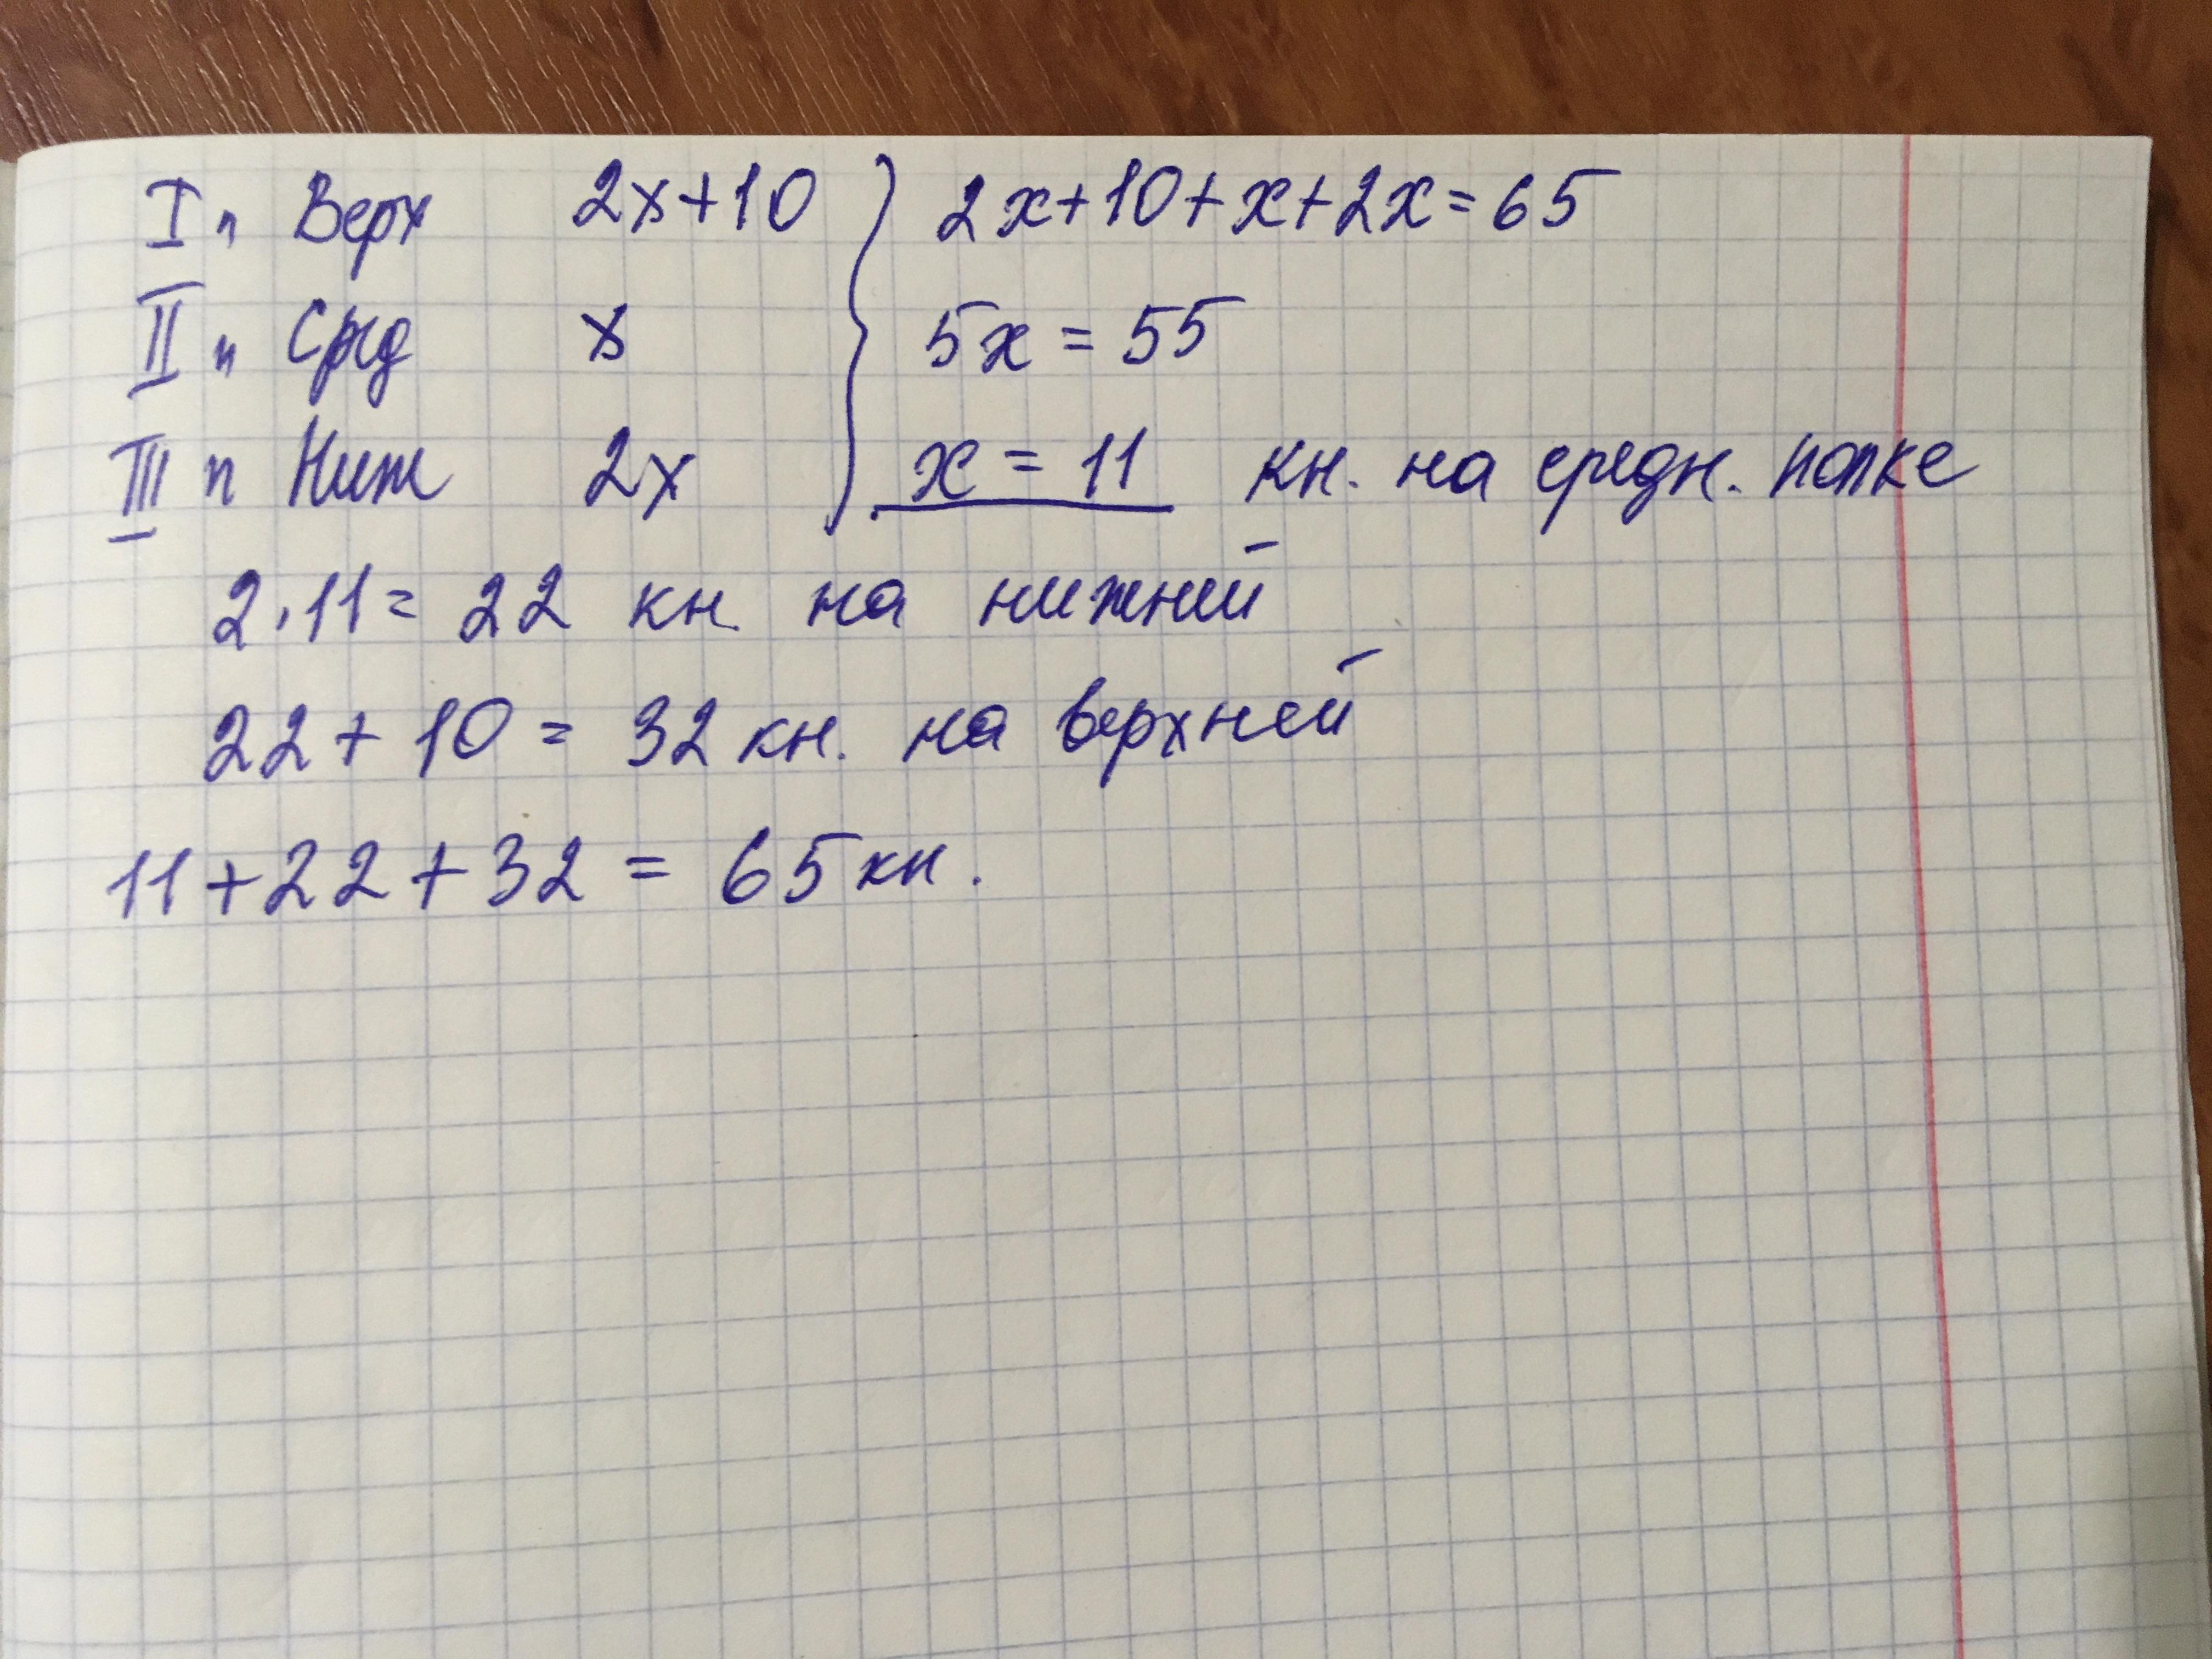 I п Верх 2x+10 } 2x+10+x+2x=65
II п Сред x 5x = 55
III п Ниж 2x x = 11 кн. на средн. полке
2·11= 22 кн. на нижней
22+10= 32 кн. на верхней
11+22+32 = 65 кн.